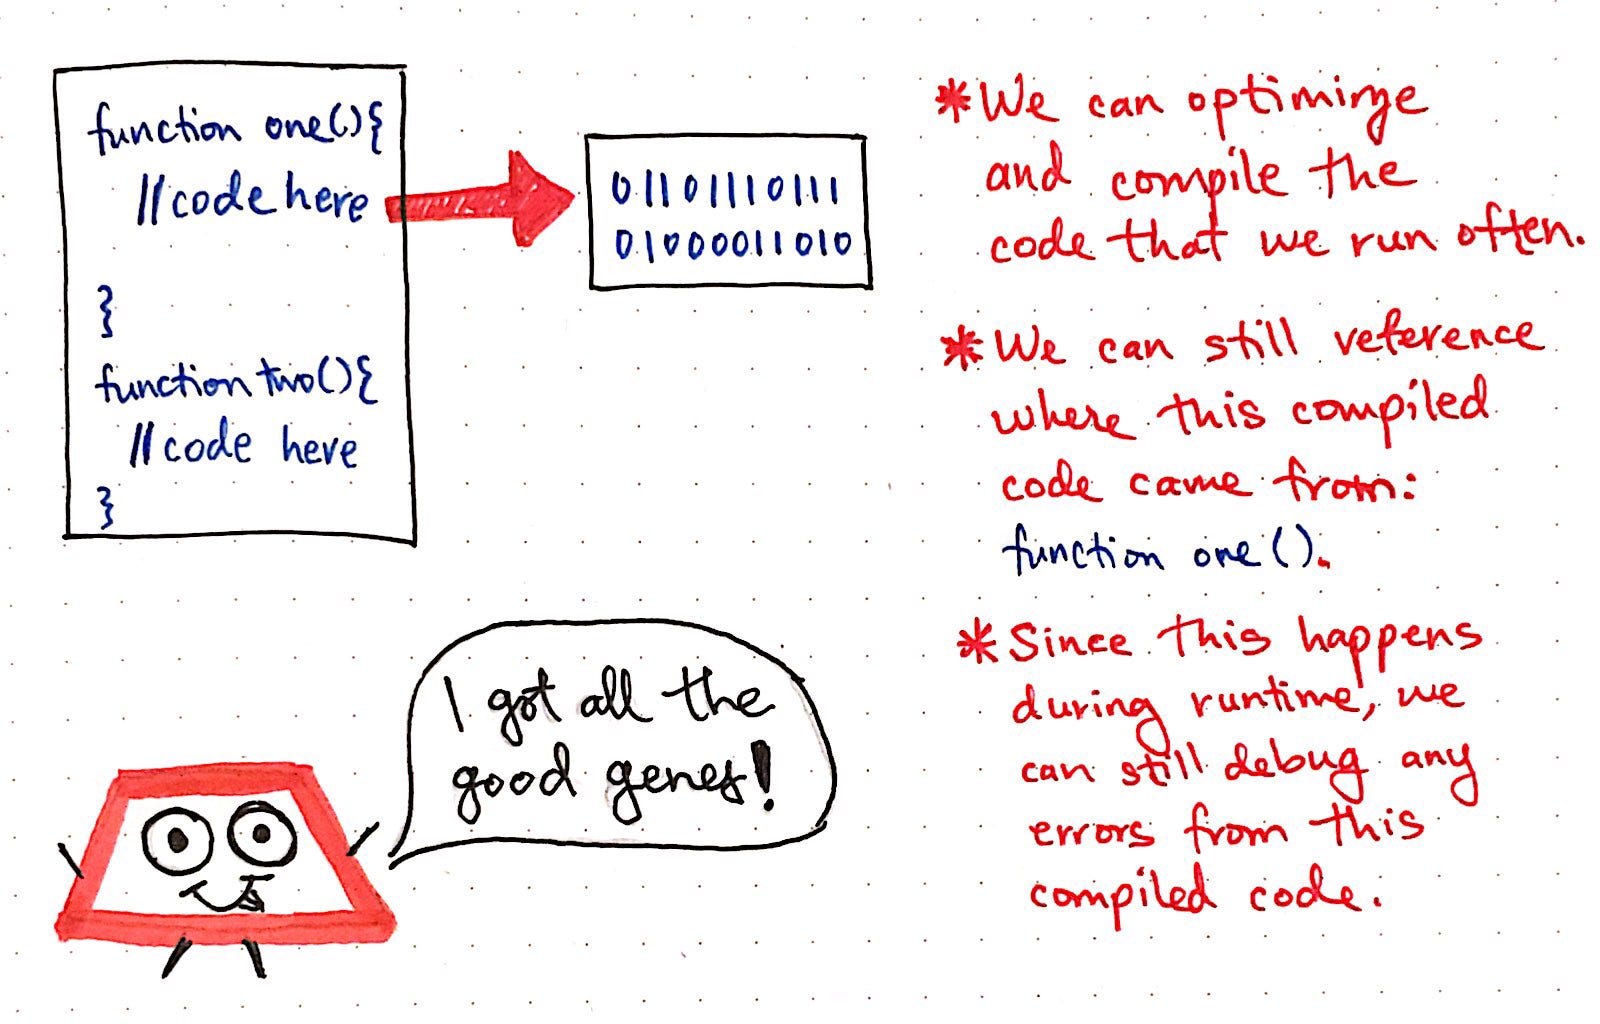 function one(){
//code here
}
function two(){
//code here
}
01101110111
01000011010
*We can optimize
and compile the
code that we run often.
*We can still reference
where this compiled
code came from:
function one().
*Since this happens
during runtime, we
can still debug any
errors from this
compiled code.
I got all the
good genes!